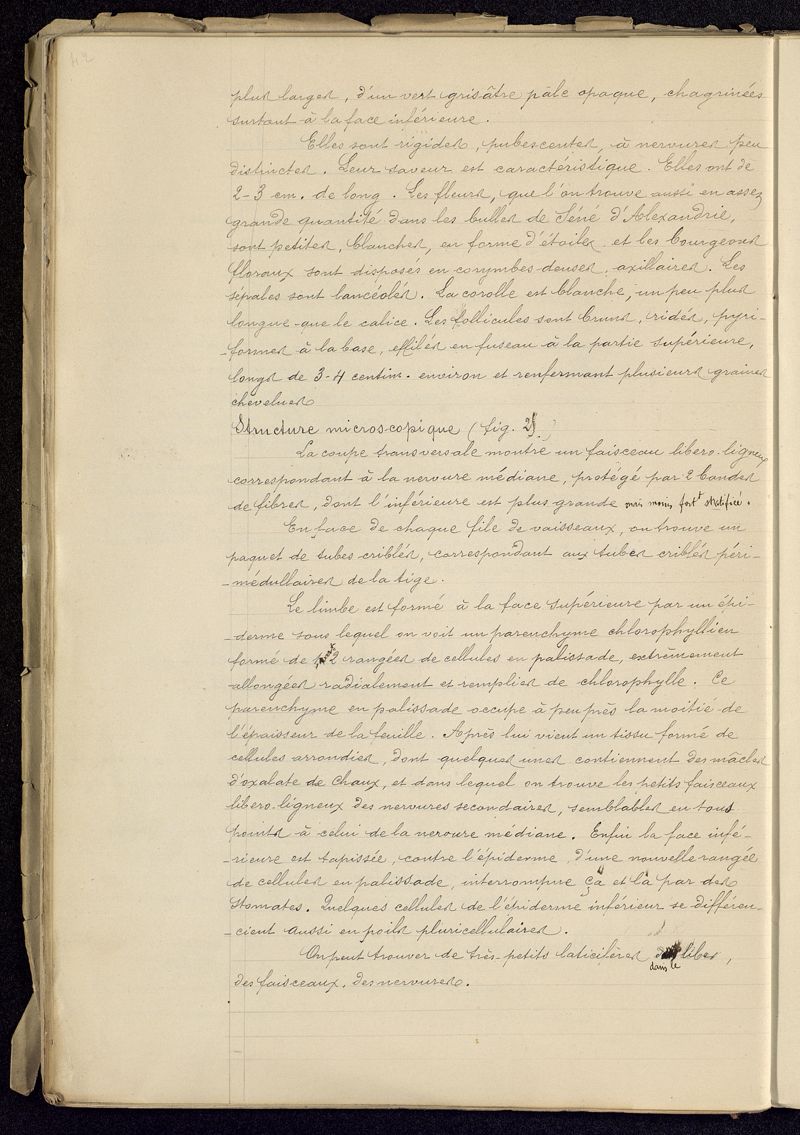 42
plus larges, d'un vert grisâtre pâle opaque, chagrinées
surtout à la face inférieure.
Elles sont rigides, pubescentes, à nervures peu
distinctes. Leur saveur est caractéristique. Elles ont de
2-3 cm. de long. Les fleurs, que l'on trouve aussi en assez
grande quantité dans les bulles de Séné d'Alexandrie,
sont petites, blanches, en forme d'étoiles et les bourgeons
floraux sont disposés en corymbes denses, axillaires. Les
sépales sont lancéolés. La corolle est blanche, un peu plus
longue que le calice. Les follicules sont bruns, ridés, pyri-
-formes à la base, effilés en fuseau à la partie supérieure,
longs de 3-4 centim. environ et renfermant plusieurs graines
chevelues
Structure microscopique (fig. 2).
La coupe transversale montre un faisceau libero-ligneux
correspondant à la nervure médiane, protégé par 2 bandes
de fibres, dont l'inférieure est plus grande mais moins fort^t stratifiée.
En face de chaque file de vaisseaux, on trouve un
paquet de tubes criblés, correspondant aux tubes criblés péri-
-médullaires de la tige.
Le limbe est formé à la face supérieure par un épi-
-derme sous lequel on voit un parenchyme chlorophyllien
formé de 2 rangées de cellules en palissade, extrêmement
allongées radialement et remplies de chlorophylle. Ce
parenchyme en palissade occupe à peu près la moitié de
l'épaisseur de la feuille. Après lui vient un tissu formé de
cellules arrondies, dont quelques unes contiennent des mâcles
d'oxalate de chaux, et dans lequel on trouve les petits faisceaux
libero-ligneux des nervures secondaires, semblables en tous
points à celui de la nervure médiane. Enfin la face infé-
-rieure est tapissée, contre l'épiderme, d'une nouvelle rangée
de cellules en palissade, interrompue çà et là par des
stomates. Quelques cellules de l'épiderme inférieur se différen-
-cient aussi en poils pluricellulaires.
On peut trouver de très-petits laticifères dans le liber,
des faisceaux des nervures.